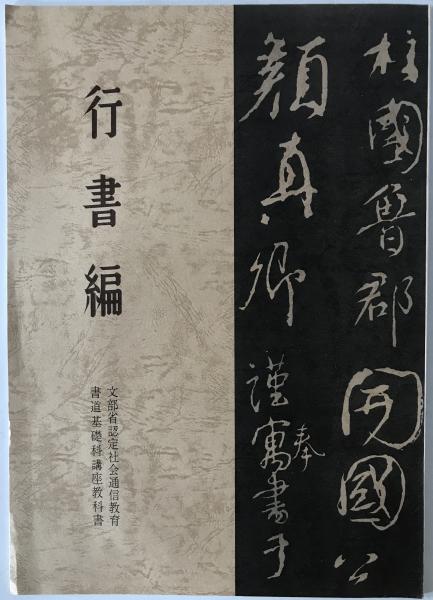 柱國魯郡開國公
顏真卿謹奉寓書于
行書編
文部省認定社会通信教育
書道基礎科講座教科書